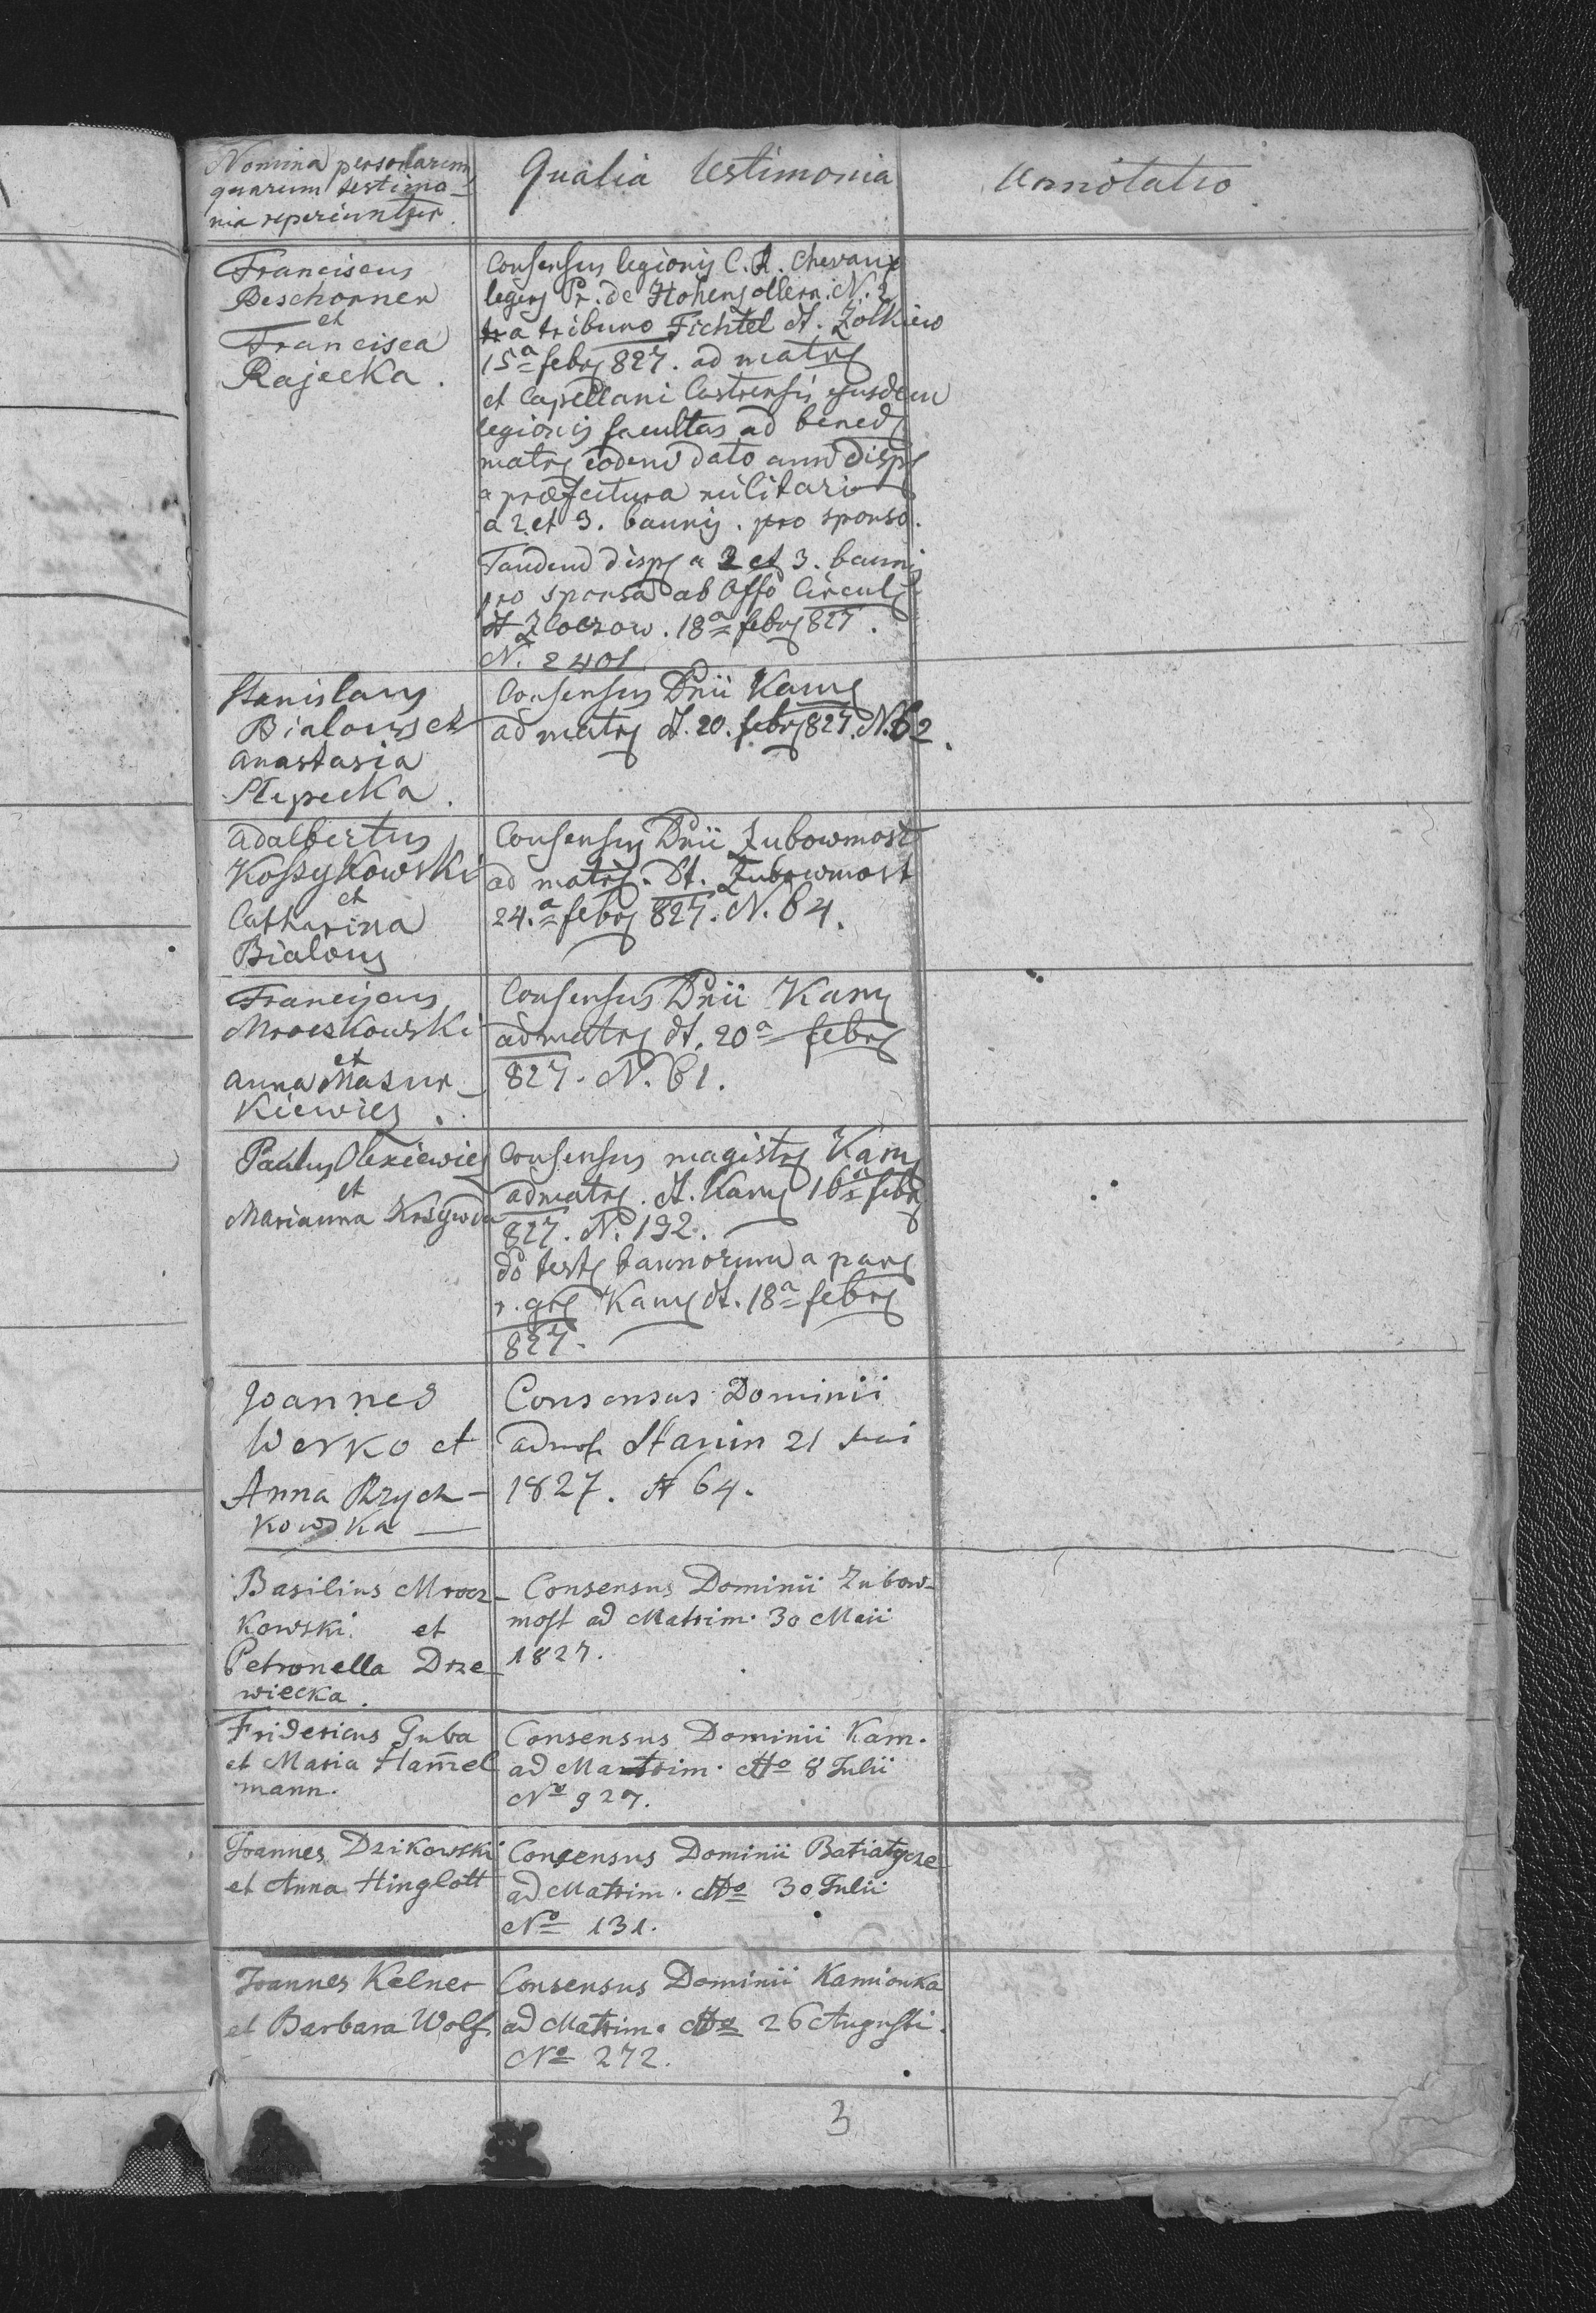 Nomina personarum
quarum testimo-
nia reperiuntur.
Qualia testimonia
Annotatio
Franciscus
Beschorner
et
Francisca
Rajecka.
Consensus legionis C. R. Chevaux
legers Pr. de Hohenzollern. N. 2
a tribuno Fichtel dt. Zolkiew
15a febr 827. ad matr
et Capellani Castrensis ejusdem
legionis facultas ad bened
matr eodem dato cum disp
a præfectura militari
a 2 et 3. bannis. pro sponso.
Tandem disp a 2 et 3. bannis
pro sponsa ab Offo Circul
dt Zloczow. 18a febr 827.
N. 2401
Stanislaus
Bialous et
Anastasia
Slepecka.
Consensus Dnii Kam
ad matr dt. 20. febr 827. N. 62.
Adalbertus
Koszykowski
et
Catharina
Bialous
Consensus Dnii Zubowmost
ad matr. Dt. Zubowmost
24.a febr 827. N. 64.
Franciscus
Mroczkowski
et
Anna Mazur-
kiewicz.
Consensus Dnii Kam
ad matr dt. 20a febr
827. N. 61.
Paulus Olexiewicz
et
Marianna Krzywda
Consensus magistr Kam
ad matr. dt. Kam 16a febr
827. N. 192.
do test bannorum a par
r. gr Kam dt. 18a febr
827.
Joannes
Werko et
Anna Rzycz-
kowska
Consensus Dominii
ad Stanin 21
1827. N 64.
Basilius Mrocz-
kowski et
Petronella Drze-
wiecka.
Consensus Dominii Zubow-
most ad Matrim. 30 Maii
1827.
Fridericus Guba
et Maria Ham̄el
mann.
Consensus Dominii Kam.
ad Matrim. dto 8 Julii
No 927.
Joannes Dzikowski
et Anna Hinglott
Consensus Dominii Batiatycze
ad Matrim. dto 30 Julii
No 131.
Joannes Kelner
et Barbara Wolf
Consensus Dominii Kamionka
ad Matrim. dto 26 Augusti.
No 272.
3